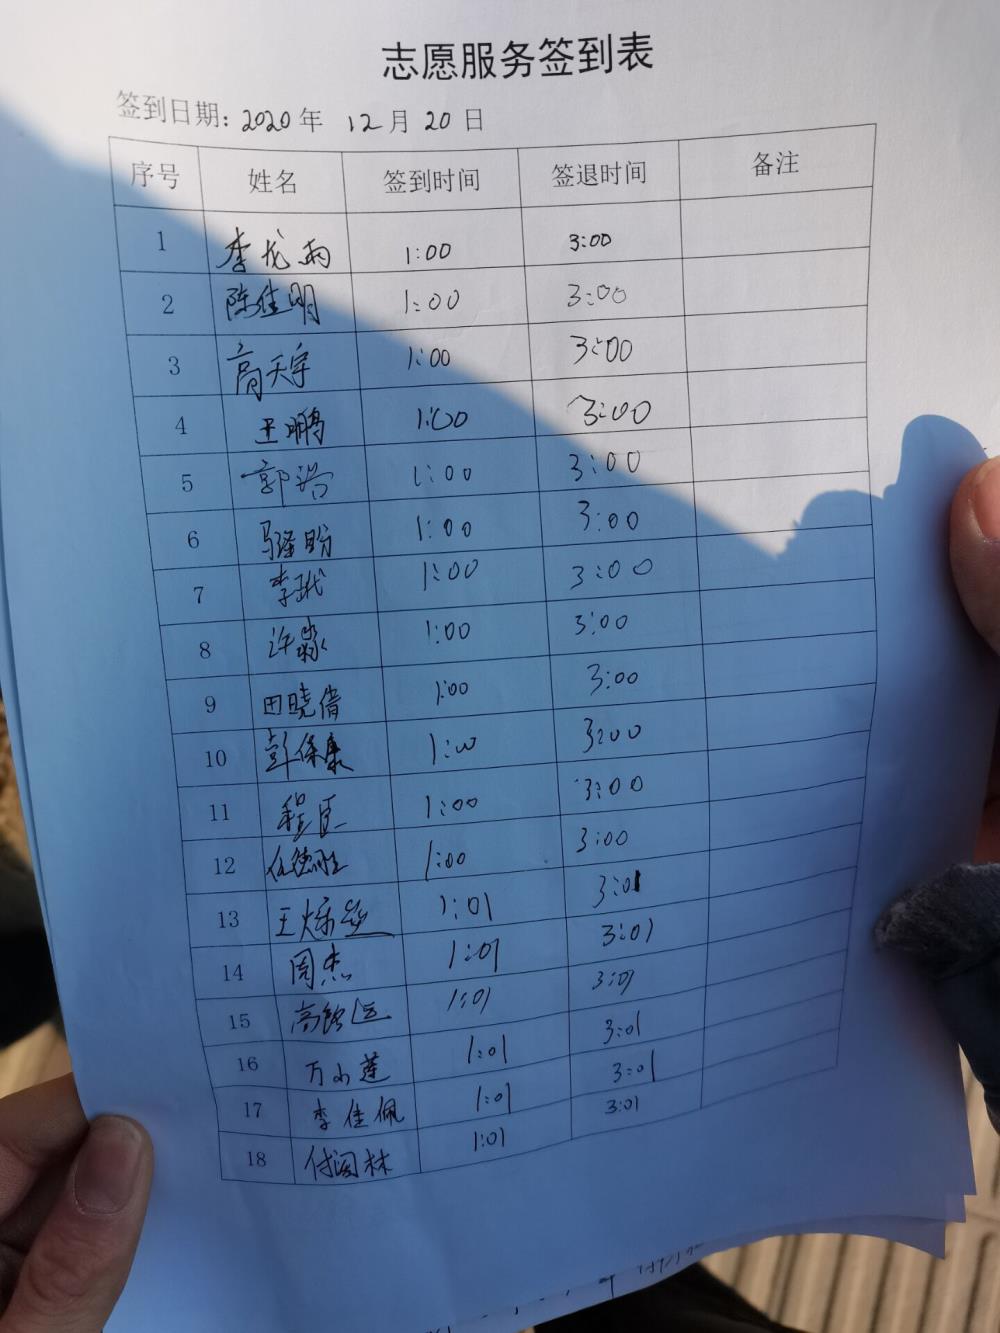 志愿服务签到表
签到日期: 2020年 12月 20日
序号 姓名 签到时间 签退时间 备注
1 李龙雨 1:00 3:00
2 陈佳明 1:00 3:00
3 高天宇 1:00 3:00
4 王鹏 1:00 3:00
5 郭浩 1:00 3:00
6 1:00 3:00
7 李 1:00 3:00
8 许淼 1:00 3:00
9 田晓倩 1:00 3:00
10 彭保康 1:00 3:00
11 程臣 1:00 3:00
12 任德胜 1:00 3:00
13 王 1:01 3:01
14 周杰 1:01 3:01
15 高 1:01 3:01
16 万小莲 1:01 3:01
17 李佳佩 1:01 3:01
18 付国林 1:01 3:01